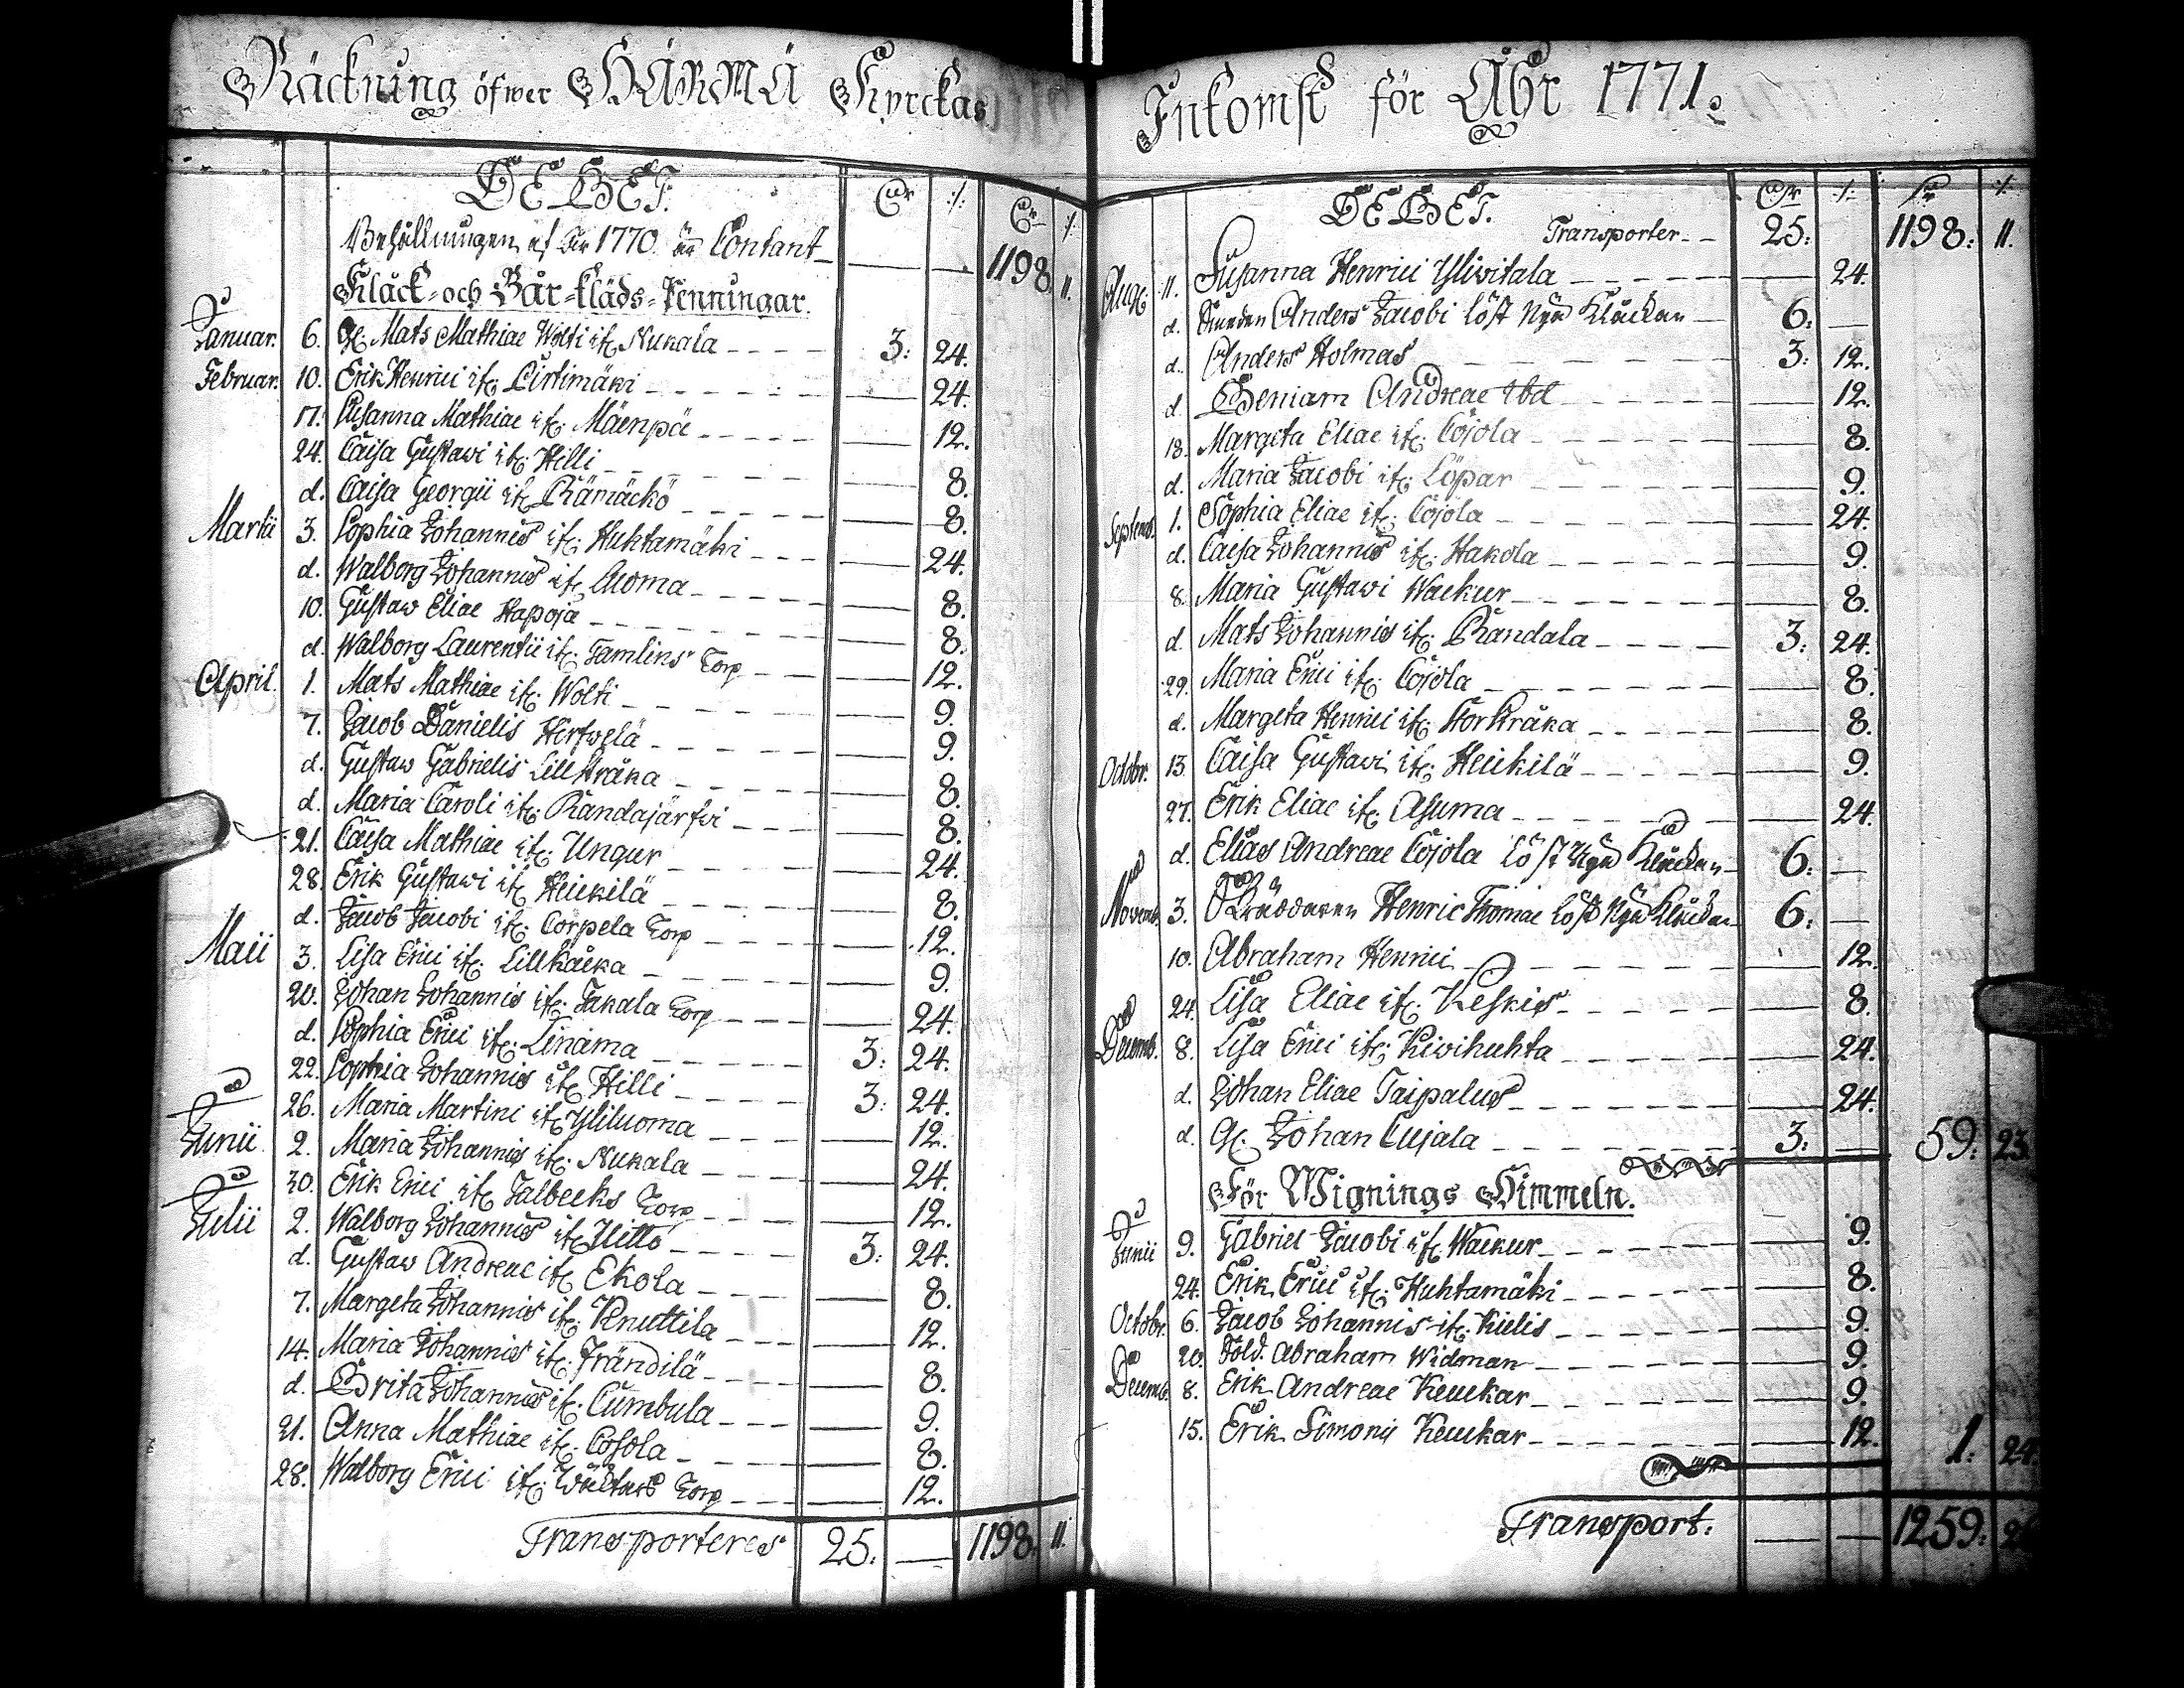 Räckning öfwer HÄRMÄ Kyrckas
DEBET. Cur ./.
Cur ./.
Behållningen af Åhr 1770 är Contant — — 1198. 11.
Kläck- och Bår-kläds-Penningar.
Januar. 6. Gl. Mats Mathiae Wolti if. Nukala 3: 24.
Februar. 10. Erik Henrici if. Lirtimäki — 24.
17. Susanna Mathiae if. Mäenpä — 12.
24. Caisa Gustawi if. Hilli — 8.
d. Caisa Georgii if. Rämäckö — 8.
Martii 3. Sophia Johannis if. Huhtamäki — 24.
d. Walborg Johannis if. Luoma — 8.
10. Gustaw Eliae Hapoja — 8.
d. Walborg Laurentii if. Tamlins Torp — 12.
April. 1. Mats Mathiae if. Wolti — 9.
7. Jacob Danielis Hirfwelä — 9.
d. Gustaw Gabrielis Lillkråka — 8.
d. Maria Caroli if. Randajärfwi — 8.
21. Caisa Mathiae if. Ungur — 24.
28. Erik Gustawi if. Heikilä — 8.
d. Jacob Jacobi if. Corpela Torp — 12.
Maii 3. Lisa Erici if. Lillkråka — 9.
20. Johan Johannis if. Takala Torp — 24.
d. Sophia Erici if. Linama 3: 24.
22. Sophia Johannis if. Hilli 3: 24.
26. Maria Martini if. Yliluoma — 12.
Junii 2. Maria Johannis if. Nukala — 24.
30. Erik Erici if. Talbecks Torp — 12.
Julii 2. Walborg Johannis if. 3: 24.
d. Gustaw Andreae if. Ekola — 8.
7. Margeta Johannis if. Knuttila — 12.
14. Maria Johannis if. Frändilä — 8.
d. Brita Johannis if. Cumbula — 9.
21. Anna Mathiae if. Cojola — 8.
28. Walborg Erici if. Torp — 12.
Transporteres 25. — 1198. 11.
Inkomst för Åhr 1771.
DEBET. Cur ./. Cur ./.
Transporter 25: 1198: 11.
Aug. 11. Susanna Henrici Yliwitala — 24.
d. Anders Jacobi löst Nya Kläckan 6: —
d. Anders Holmas 3: 12.
d. Beniam Andreae Ibd — 12.
18. Margeta Eliae if. Cojola — 8.
d. Maria Jacobi if. Löpar — 9.
Septemb. 1. Sophia Eliae if. Cojola — 24.
d. Caisa Johannis if. Hakola — 9.
8. Maria Gustawi Wackur — 8.
d. Mats Johannis if. Randala 3: 24.
29. Maria Erici if. Cojola — 8.
d. Margeta Henrici if. Storkråka — 8.
Octobr. 13. Caisa Gustawi if. Heikilä — 9.
27. Erik Eliae if. Asuma — 24.
d. Elias Andreae Cojola löst Nya Kläckan 6: —
Novemb. 3. Henric Thomae löst Nya Kläckan 6: —
10. Abraham Henrici — 12.
24. Lisa Eliae if. Keskis — 8.
Decemb. 8. Lisa Erici if. Kiwihuhta — 24.
d. Johan Eliae Taipalus — 24.
d. Gl. Johan Lujala 3: — 59: 23.
För Wignings Himmeln.
Junii 9. Gabriel Jacobi if. Wackur — 9.
24. Erik Erici if. Huhtamäki — 8.
Octobr. 6. Jacob Johannis if. Kielis — 9.
20. Sold. Abraham Widman — 9.
Decemb. 8. Erik Andreae Keuckar — 9.
15. Erik Simonis Keuckar — 12. 1: 24.
Transport. — — 1259: